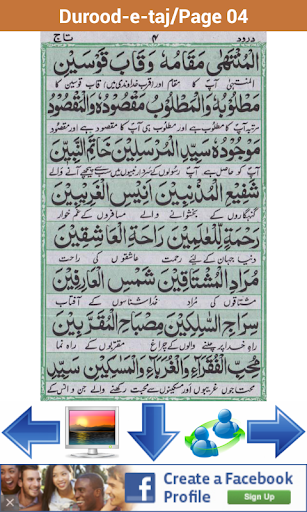 Durood-e-taj/Page 04
درود ۴ تاج
الْمُنْتَهٰى مَقَامُهٗ وَقَابَ قَوْسَيْنِ
المنتہی آپ کا مقام اور (قرب خداوندی میں) قاب قوسین کا
مَطْلُوْبُهٗ وَالْمَطْلُوْبُ مَقْصُوْدُهٗ وَالْمَقْصُوْدُ
مرتبہ آپ کا مطلوب ہے اور مطلوب ہی آپ کا مقصود ہے اور مقصود
مَوْجُوْدُهٗ سَيِّدِ الْمُرْسَلِيْنَ خَاتَمِ النَّبِيِّيْنَ
آپ کو حاصل ہے آپ رسولوں کے سردار نبیوں میں سب سے پیچھے آنے والے
شَفِيْعِ الْمُذْنِبِيْنَ اَنِيْسِ الْغَرِيْبِيْنَ
گنہگاروں کے بخشوانے والے مسافروں کے غم خوار
رَحْمَةٍ لِّلْعٰلَمِيْنَ رَاحَةِ الْعَاشِقِيْنَ
دنیا جہان کے لئے رحمت عاشقوں کی راحت
مُرَادِ الْمُشْتَاقِيْنَ شَمْسِ الْعَارِفِيْنَ
مشتاقوں کی مراد خدا شناسوں کے آفتاب
سِرَاجِ السَّالِكِيْنَ مِصْبَاحِ الْمُقَرَّبِيْنَ
راہ خدا پر چلنے والوں کے چراغ مقربوں کے راہ نما
مُحِبِّ الْفُقَرَآءِ وَالْغُرَبَآءِ وَالْمَسٰكِيْنِ سَيِّدِ
محتاجوں غریبوں اور مسکینوں سے محبت رکھنے والے جن و انس کے
Create a Facebook
Profile
Sign Up